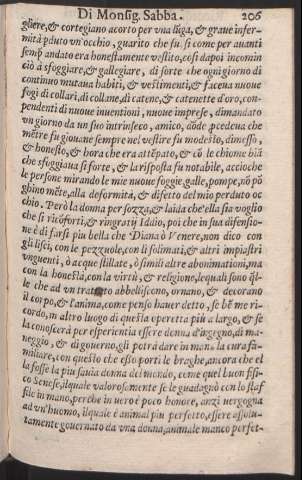 Di Monsig. Sabba. 206
gliere, & cortegiano acorto per vna lũga, & graue infer-
mità pduto vn'occhio, guarito che fu, si come per auanti
semp andato era honestamente vestito, così dapoi incomin
ciò à sfoggiare, & gallegiare, di sorte che ogni giorno di
continuo mutaua habiti, & vestimenti, & faceua nuoue
fogi di collari, di collane, di catene, & catenette d'oro, con-
pendenti di nuoue inuentioni, nuoue imprese, dimandato
vn giorno da un suo intrinseco, amico, dõde pcedeua che
mẽtre fu giouane sempre nel vestire fu modesto, dimesso,
& honesto, & hora che era attẽpato, & cõ le chiome biã
che sfoggiaua si forte, & la risposta fu notabile, accioche
le persone mirando le mie nuoue foggie, galle, pompe, nõ põ
ghino mẽte, alla deformità, & difetto del mio perduto oc
chio. Però la donna per sozza, & laida che ella sia voglio
che si ricõforti, & ringratij Iddio, poi che in sua difensio-
ne è di farsi piu bella che Diana ò Venere, non dico con
gli lisci, con le pezzuole, con li solimati, & altri impiastri
vnguenti, ò acque stillate, ò simili altre abonimationi, ma
con la honestà, con la virtù, & religione, lequali sono q̃l-
le che ad vn tratto abbelliscono, ornano, & decorano
il corpo, & l'anima, come penso hauer detto, se bẽ me ri-
cordo, in altro luogo di questa operetta più a largo, & se
la conoscerà per esperientia essere donna d'ingegno, di ma-
neggio, & di gouerno, gli potrà dare in mano la cura fa-
miliare, con questo che esso porti le braghe, ancora che el
la fosse la piu sauia donna del mondo, come quel buon fisi-
co Senese, ilquale valorosamente se le guadagnò con lo staf
file in mano, perche in uero è poco honore, anzi uergogna
ad vn'huomo, ilquale è animal piu perfetto, essere assolu-
tamente gouernato da vna donna, animale manco perfet-